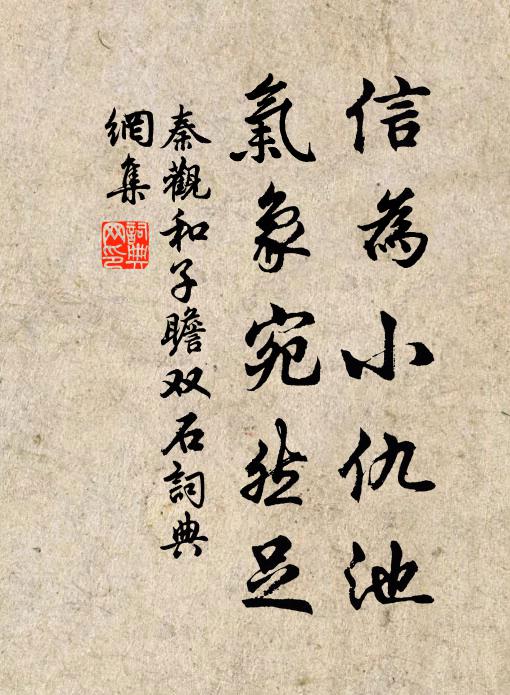 信為小仇池
氣象宛然足
秦觀和子瞻双石詞典
網集
詞典
网印